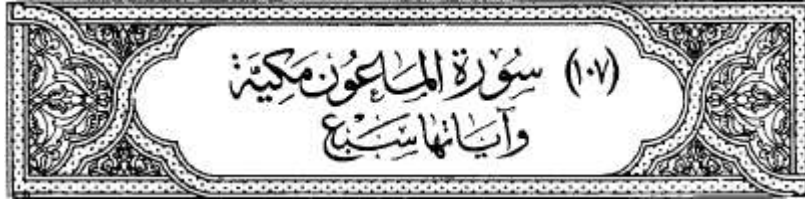 (١٠٧) سُورَةُ المَاعُون مَكيَّة
وآيَاتهَا سَبْع